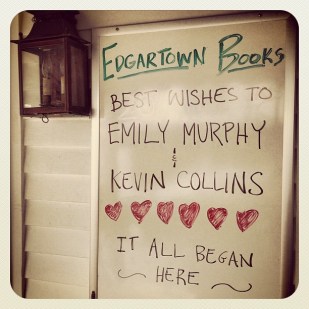 EDGARTOWN BOOKS
BEST WISHES TO
EMILY MURPHY
&
KEVIN COLLINS
IT ALL BEGAN
HERE